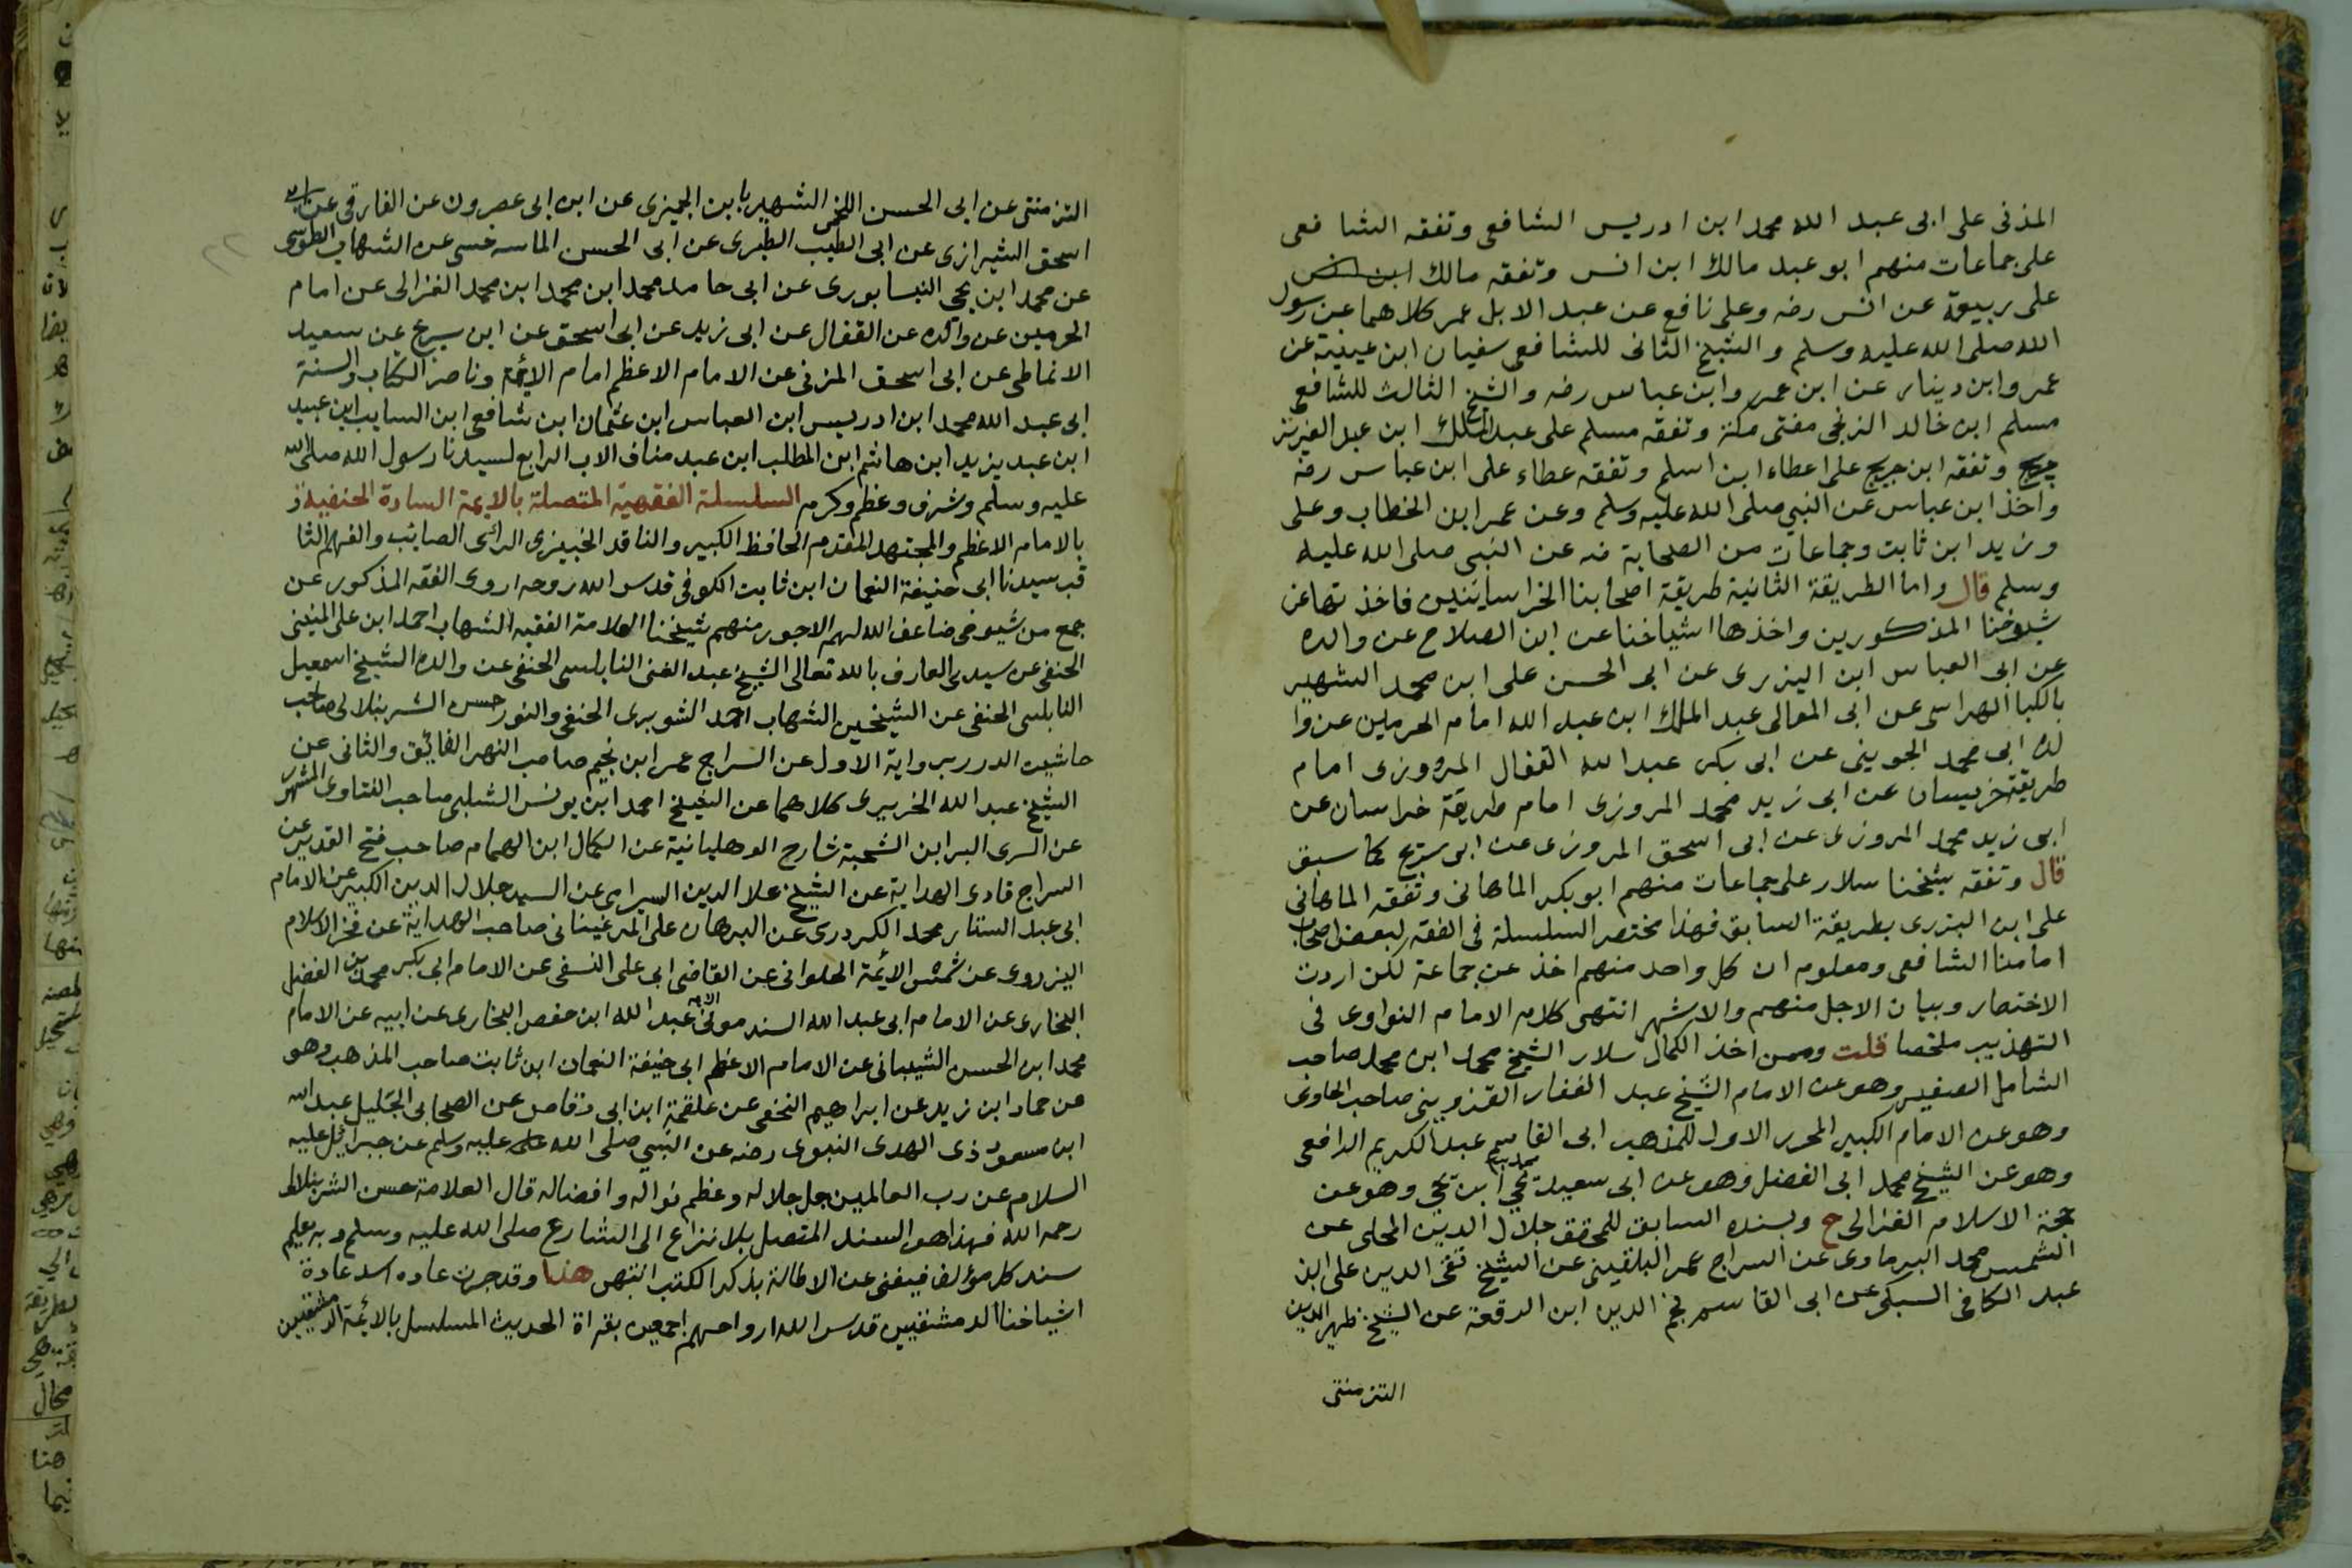 المذنى على ابى عبد الله محمد ابن ادريس الشافعى وتفقه الشافعى
على جماعات منهم ابو عبد مالك ابن انس وتفقه مالك
على ربيعة عن انس رضه وعلى نافع عن عبد الابل عمر كلاهما عن رسول
الله صلى الله عليه وسلم والشيخ الثانى للشافعى سفيان ابن عيينة عن
عمر وابن دينار عن ابن عمر وابن عباس رضه والشيخ الثالث للشافعى
مسلم ابن خالد الزنجى مفتى مكة وتفقه مسلم على عبد الملك ابن عبد العزيز
جريج وتفقه ابن جريج على اعطاء ابن اسلم وتفقه عطاء على ابن عباس رضه
واخذ ابن عباس عن النبي صلى الله عليه وسلم وعن عمر ابن الخطاب وعلى
وزيد ابن ثابت وجماعات من الصحابة ضه عن النبى صلى الله عليه
وسلم قال واما الطريقة الثانية طريقة اصحابنا الخراسانيين فاخذتها عن
شيوخنا المذكورين واخذها اشياخنا عن ابن الصلاح عن والده
عن ابى العباس ابن اليزرى عن ابى الحسن على ابن محمد الشهير
بالكيا الهراسى عن ابى المعالى عبد الملك ابن عبد الله امام الحرمين عن وا
لده ابى محمد الجوينى عن ابى بكر عبد الله القفال المروزى امام
طريقة خريسان عن ابى زيد محمد المروزى امام طريقة خراسان عن
ابى زيد محمد المروزى عن ابى اسحق المروزى عن ابى سريج كما سبق
قال وتفقه شيخنا سلار على جماعات منهم ابو بكر الماهانى وتفقه الماهانى
على ابن البزرى بطريقة السابق فهذا مختصر السلسلة فى الفقه لبعض اصحاب
امامنا الشافعى ومعلوم ان كل واحد منهم اخذ عن جماعة لكن اردت
الاختصار وبيان الاجل منهم والاشهر انتهى كلام الامام النواوى فى
التهذيب ملخصا قلت وممن اخذ الكمال سلار الشيخ محمد ابن محمد صاحب
الشامل الصغير وهو عن الامام الشيخ عبد الغفار القزوينى صاحب الحاوى
وهو عن الامام الكبير المحرر الاول للمذهب ابى القاسم عبد الكريم الرافعى
وهو عن الشيخ محمد ابى الفضل وهو عن ابى سعيد محمد ابن يحيى وهو عن
حجة الاسلام الغزالى ح وبسنده السابق للمحقق جلال الدين المحلى عن
الشمس محمد البرماوى عن السراج عمر البلقينى عن الشيخ تقى الدين على ابن
عبد الكافى السبكى عن ابى القاسم نجم الدين ابن الرقعة عن الشيخ ظهير الدين
التزمنتى
التزمنتى عن ابى الحسن اللخمى الشهير بابن الجميزى عن ابن ابى عصرون عن الفارقى عن ابى
اسحق الشيرازى عن ابى الطيب الطبرى عن ابى الحسن الماسرخسى عن الشهاب الطوسى
عن محمد ابن يحيى النيسابورى عن ابى حامد محمد ابن محمد ابن محمد الغزالى عن امام
الحرمين عن والده عن القفال عن ابى زيد عن ابى اسحق عن ابن سريج عن سعيد
الانماطى عن ابى اسحق المزنى عن الامام الاعظم امام الائمة وناصر الكتاب والسنة
ابى عبد الله محمد ابن ادريس ابن العباس ابن عثمان ابن شافع ابن السايب ابن عبيد
ابن عبد يزيد ابن هاشم ابن المطلب ابن عبد مناف الاب الرابع لسيدنا رسول الله صلى الله
عليه وسلم وشرف وعظم وكرم السلسلة الفقهية المتصلة بالايمة السادة الحنفية
بالامام الاعظم والمجتهد المقدم الحافظ الكبير والناقد الخبير ذى الرائى الصائب والفهم الثا
قب سيدنا ابى حنيفة النعمان ابن ثابت الكوفى قدس الله روحه اروى الفقه المذكور عن
جمع من شيوخى ضاعف الله لهم الاجور منهم شيخنا العلامة الفقيه الشهاب احمد ابن على المنينى
الحنفى عن سيدى العارف بالله تعالى الشيخ عبد الغنى النابلسى الحنفى عن والده الشيخ اسمعيل
النابلسى الحنفى عن الشيخين الشهاب احمد الشوبرى الحنفى والنور حسن الشرنبلالى صاحب
حاشية الدرر برواية الاول عن السراج عمر ابن نجيم صاحب النهر الفائق والثانى عن
الشيخ عبد الله الخريرى كلاهما عن الشيخ احمد ابن يونس الشلبى صاحب الفتاوى المشهر
عن السرى البر ابن الشحنة شارح الوهبانية عن الكمال ابن الهمام صاحب فتح القدير عن
السراج قادى الهداية عن الشيخ علا الدين السيرامى عن السيد جلال الدين الكبير عن الامام
ابى عبد الستار محمد الكردرى عن البرهان على المرغينانى صاحب الهداية عن فخر الاسلام
البزروى عن شمس الائمة الحلوانى عن القاضى ابى على النسفى عن الامام ابى بكر محمد بن الفضل
البخارى عن الامام ابى عبد الله السندمونى عبد الله ابن حفص البخارى عن ابيه عن الامام
محمد ابن الحسن الشيبانى عن الامام الاعظم ابى حنيفة النعمان ابن ثابت صاحب المذهب وهو
عن حماد ابن زيد عن ابراهيم النخفى عن علقمة ابن ابى وقاص عن الصحابى الجليل عبد الله
ابن مسعود ذى الهدى النبوى رضه عن النبي صلى الله عليه وسلم عن جبرائيل عليه
السلام عن رب العالمين جل جلاله وعظم نواله وافضاله قال العلامة حسن الشرنبلالى
رحمه الله فهذا هو السند المتصل بلا نزاع الى الشارع صلى الله عليه وسلم وبه يعلم
سند كل مؤلف فيغنى عن الاطالة بذكر الكتب انتهى هذا وقد جرت عاده اسد عادة
اشياخنا الدمشقيين قدس الله ارواحهم اجمعين بقراة الحديث المسلسل بالائمة الدمشقيين